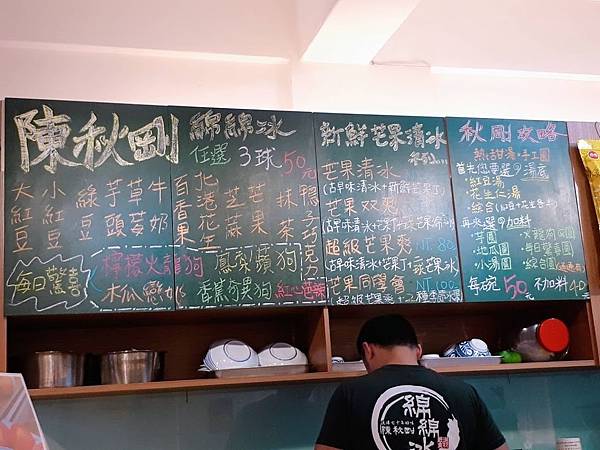 陳秋剛
綿綿冰
任選 3球 50元
大紅豆
小紅豆
綠豆
芋頭
草莓
牛奶
百香果
北港花生
芝麻
芒果
抹茶
鴨子巧克力
每日驚喜
檸檬火龍狗
木瓜戀奶
鳳梨蘋狗
香蕉奇異狗
紅心芭辣
新鮮芒果清冰
芒果清冰
(古早味清冰+新鮮芒果丁)
芒果双爽
超級芒果爽 NT.80
芒果同學會 NT.100
秋剛攻略
熱甜湯.手工圓
首先您要選@湯底
紅豆湯
花生仁湯
綜合(紅豆+花生各半)
再來選@加料
芋圓
地瓜圓
小湯圓
每日驚喜圓
綜合圓
每碗 50元 不加料
綿綿冰
陳秋剛